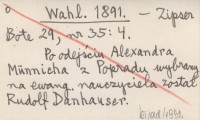 o Wahl. 1891. – Zipser
Bote 29, nr 35: 4.
Po odejściu Alexandra
Münnicha z Popradu wybrany
na ewang. nauczyciela został
Rudolf Danhauser.